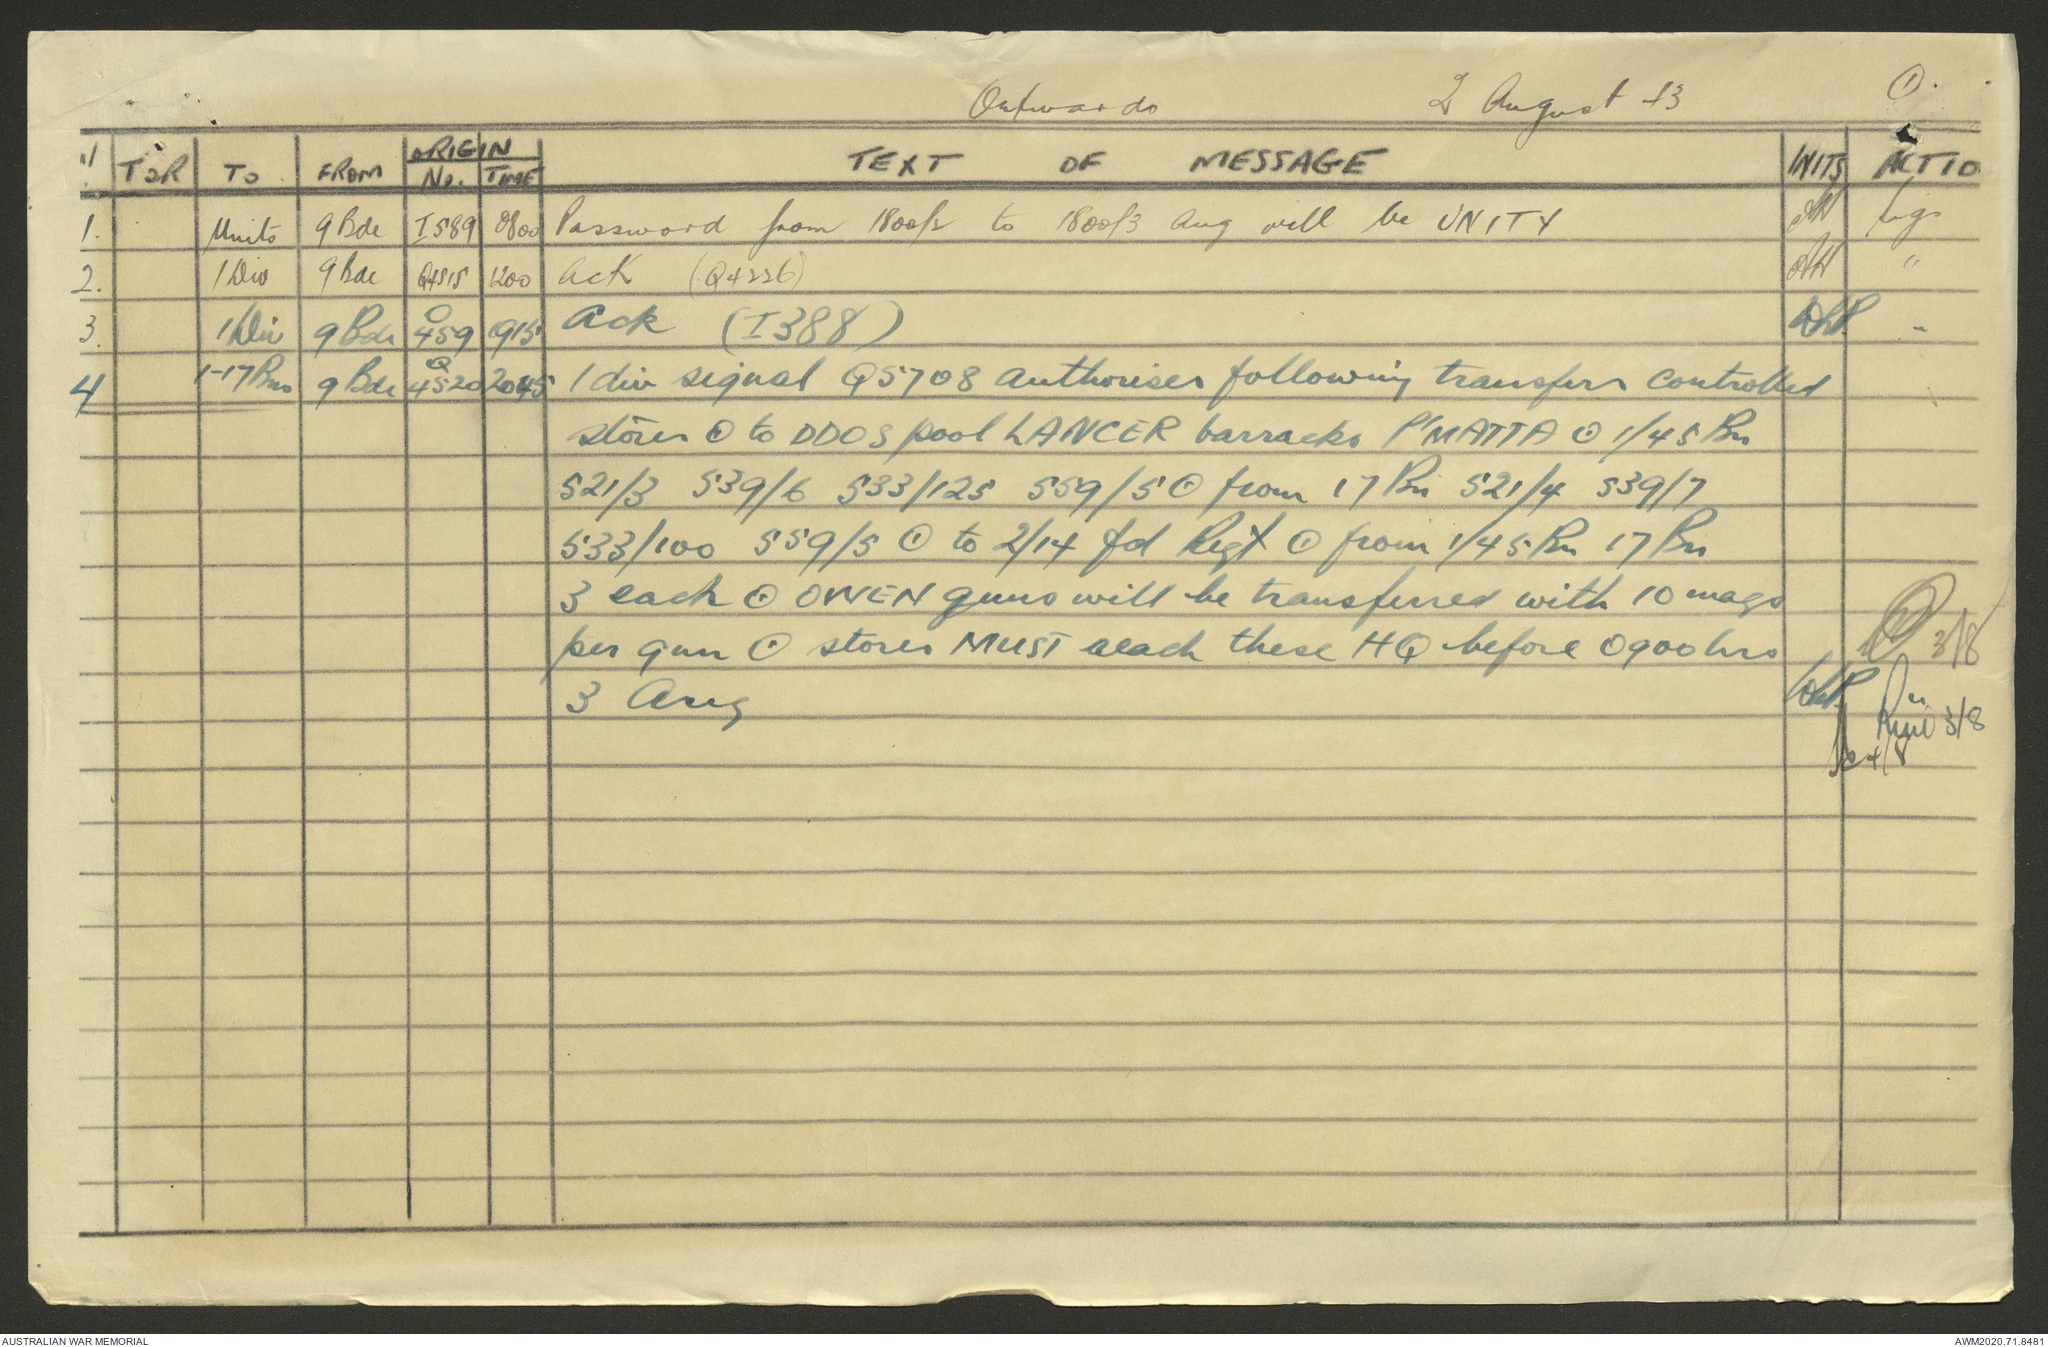 Outwards 2 August 43 1.
TOR TO FROM ORIGIN No. TIME TEXT OF MESSAGE INITS ACTIO
1. Units 9 Bde I589 0800 Password from 1800/2 to 1800/3 Aug will be UNITY
2. 1 Div 9 Bde Q4515 1200 Ack (Q4226) "
3. 1 Div 9 Bde O 459 1915 Ack (I388) WhP "
4 1-17 Bns 9 Bde Q 4520 2045 1 div signal Q5708 authorises following transfers controlled
stores ⊙ to DDOS pool LANCER barracks P'MATTA ⊙ 1/45 Bn
521/3 539/6 533/125 559/5 ⊙ from 17 Bn 521/4 539/7
533/100 559/5 ⊙ to 2/14 fd Regt ⊙ from 1/45 Bn 17 Bn
3 each ⊙ OWEN guns will be transferred with 10 mags
per gun ⊙ stores MUST reach these HQ before 0900 hrs 3/8
3 Aug WhP 3/8
AUSTRALIAN WAR MEMORIAL AWM2020.71.8481